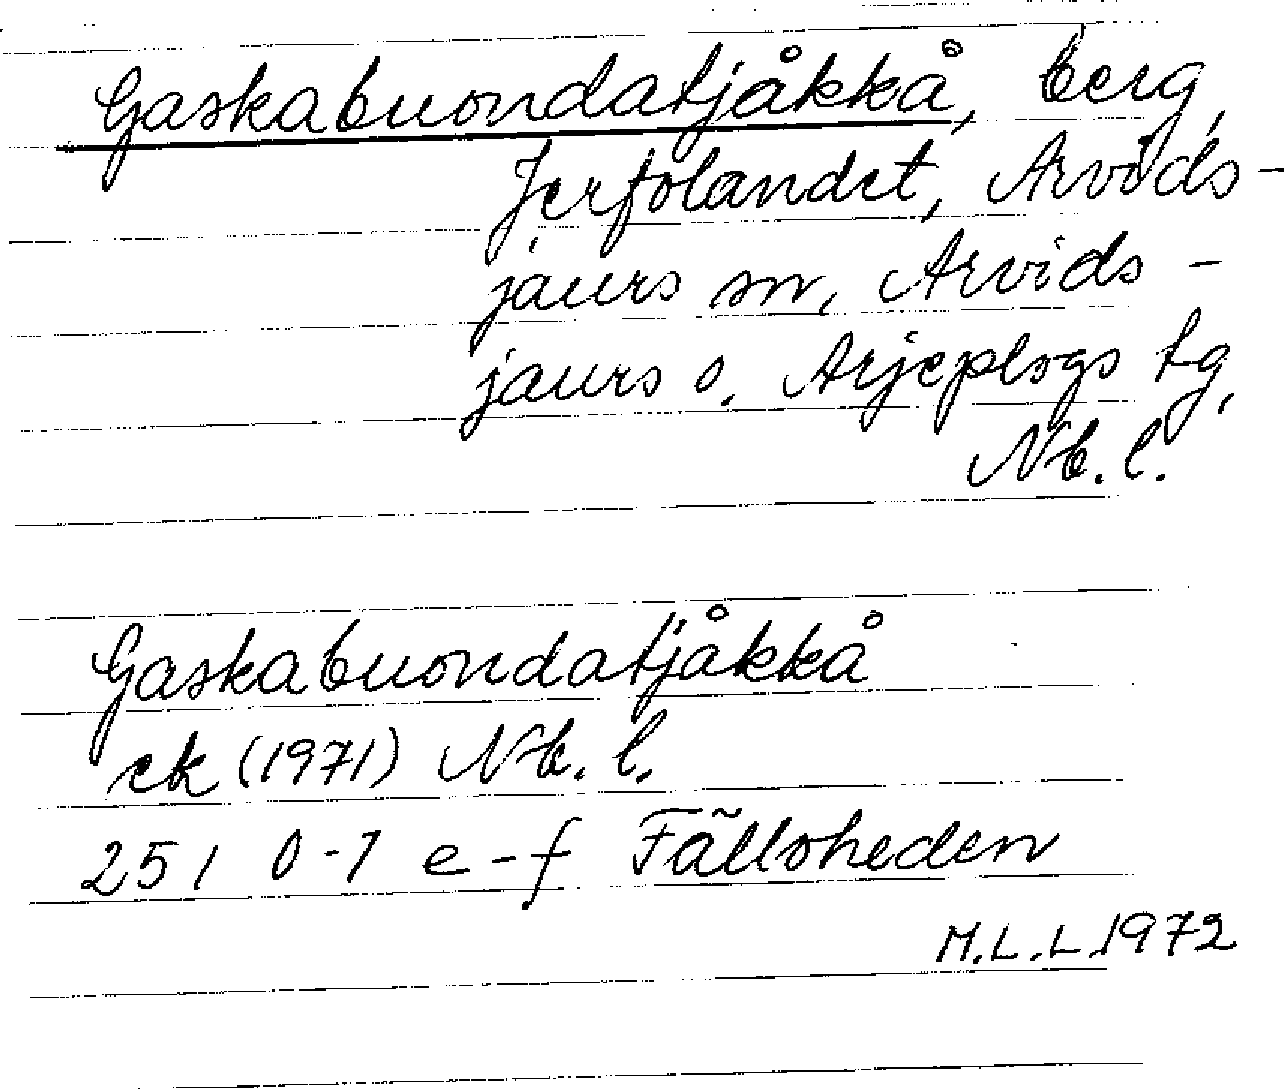 Gaskabuondatjåkkå, berg,
Jerfolandet, Arvids-
jaurs sn, Arvids-
jaurs o. Arjeplogs tg,
Nb. l.
Gaskabuondatjåkkå
ek (1971) Nb. l.
25 I 0-1 e-f Fällsheden
M.L.L. 1972